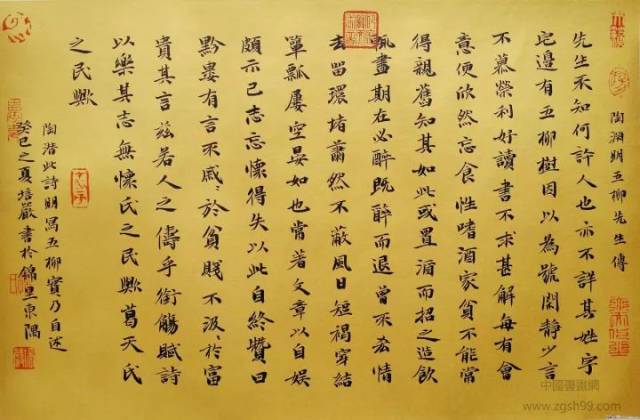 陶淵明五柳先生傳
先生不知何許人也亦不詳其姓字
宅邊有五柳樹因以為號閑静少言
不慕榮利好讀書不求甚解每有會
意便欣然忘食性嗜酒家貧不能常
得親舊知其如此或置酒而招之造飲
輒盡期在必醉既醉而退曾不吝情
去留環堵蕭然不蔽風日短褐穿結
簞瓢屢空晏如也常著文章以自娛
頗示己志忘懷得失以此自終贊曰
黔婁有言不戚〻於貧賤不汲〻於富
貴其言茲若人之儔乎銜觴賦詩
以樂其志無懷氏之民歟葛天氏
之民歟
陶潛此詩明寫五柳實乃自述
癸巳之夏培嚴書於錦里東隅
中國書畫網
www.zgsh99.com